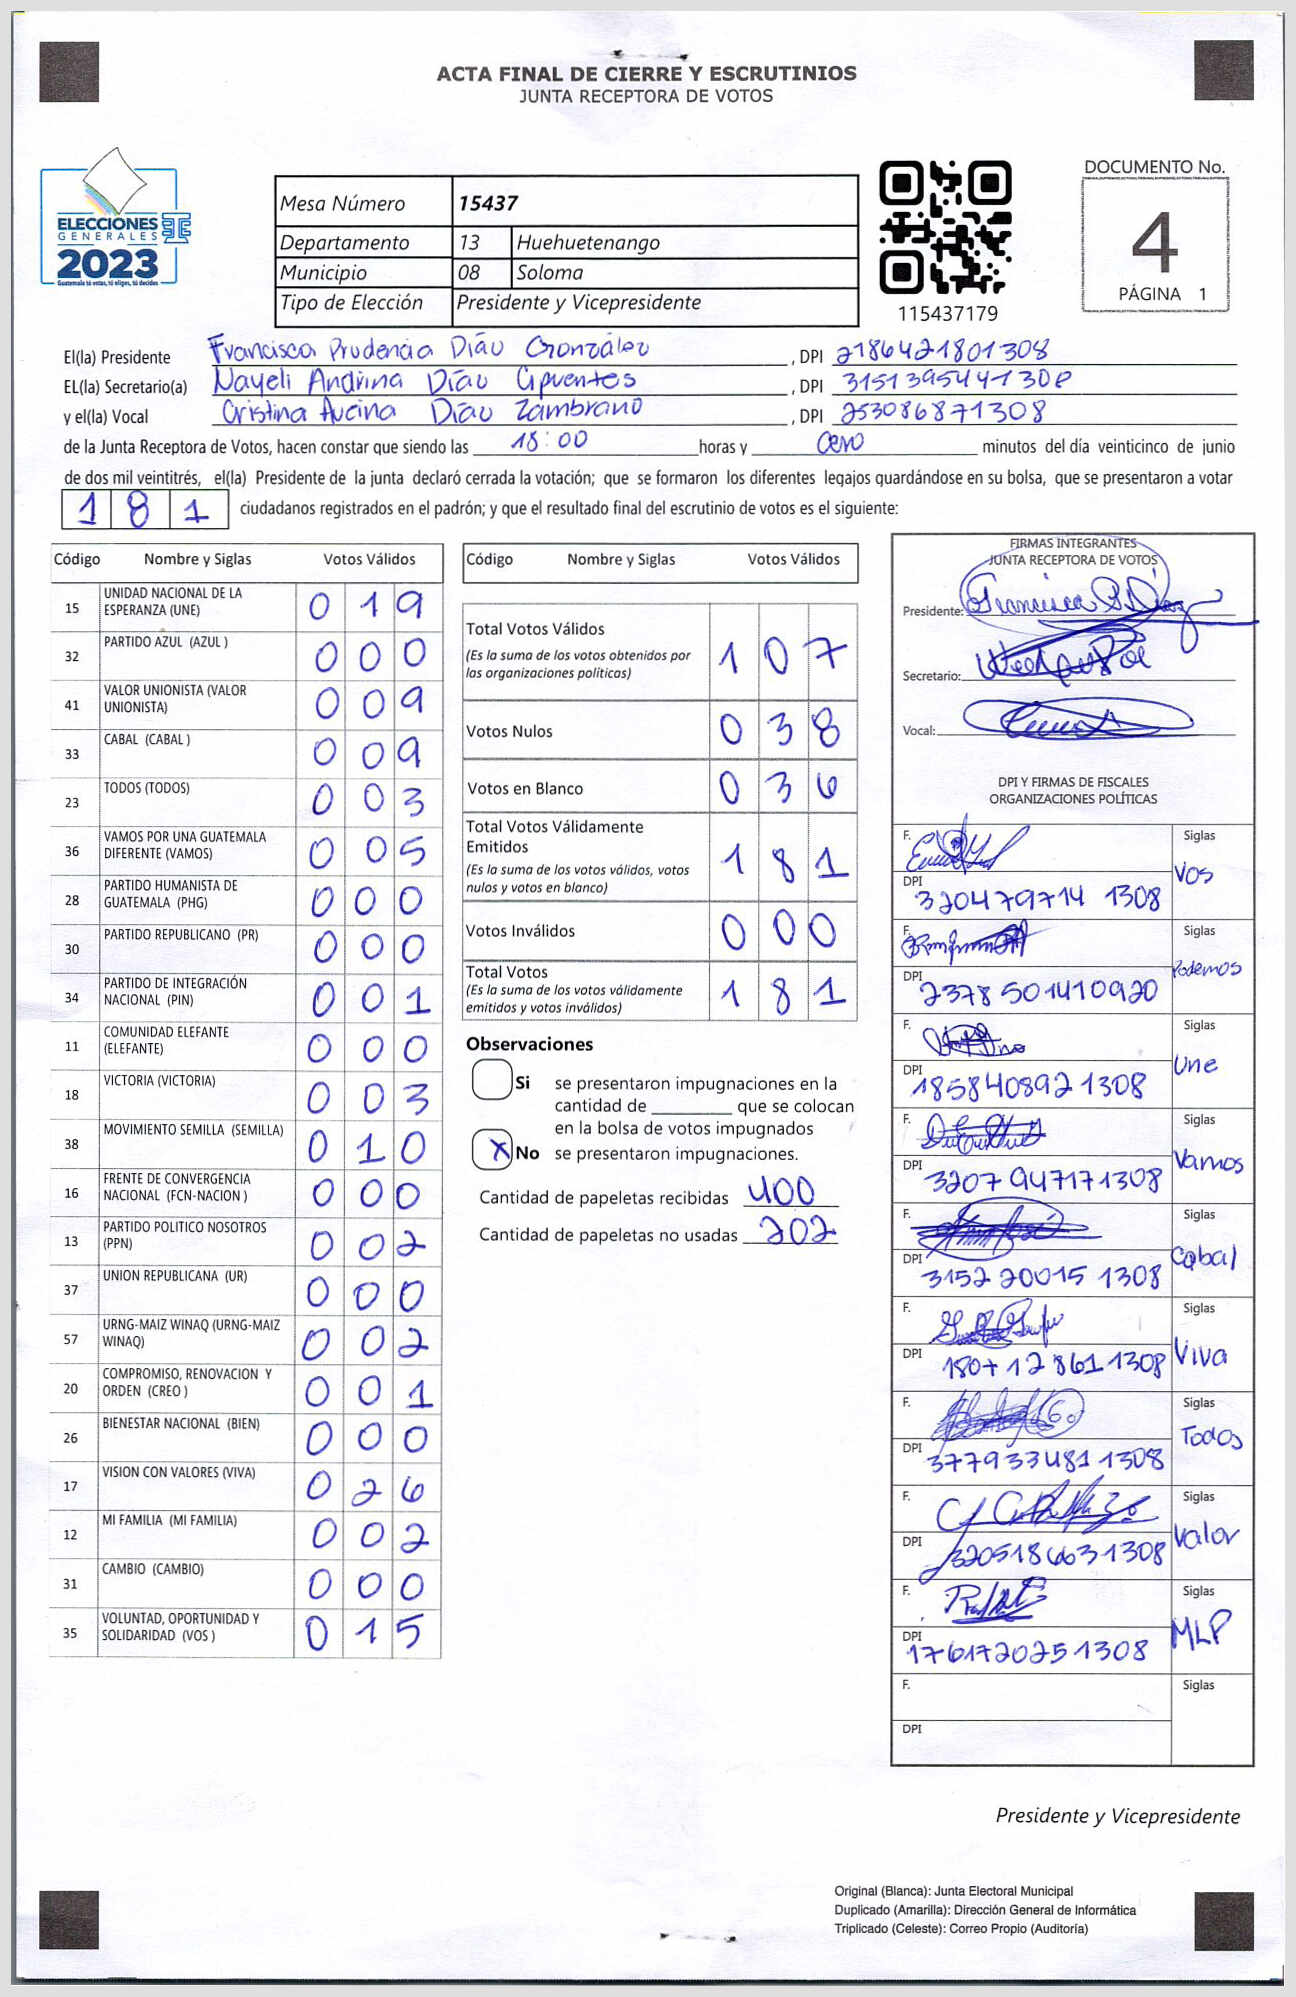 ACTA FINAL DE CIERRE Y ESCRUTINIOS
JUNTA RECEPTORA DE VOTOS
ELECCIONES
GENERALES
2023
Guatemala tú votas, tú eliges, tú decides
Mesa Número 15437
Departamento 13 Huehuetenango
Municipio 08 Soloma
Tipo de Elección Presidente y Vicepresidente
115437179
DOCUMENTO No.
4
PÁGINA 1
El(la) Presidente Francisca Prudencia Díaz González, DPI 2186421801308
EL(la) Secretario(a) Nayeli Andrina Díaz Cifuentes, DPI
y el(la) Vocal Cristina Díaz Zambrano, DPI 253086871308
de la Junta Receptora de Votos, hacen constar que siendo las 18:00 horas y cero minutos del día veinticinco de junio
de dos mil veintitrés, el(la) Presidente de la junta declaró cerrada la votación; que se formaron los diferentes legajos guardándose en su bolsa, que se presentaron a votar
181 ciudadanos registrados en el padrón; y que el resultado final del escrutinio de votos es el siguiente:
Código Nombre y Siglas Votos Válidos
15 UNIDAD NACIONAL DE LA ESPERANZA (UNE) 0 1 9
32 PARTIDO AZUL (AZUL ) 0 0 0
41 VALOR UNIONISTA (VALOR UNIONISTA) 0 0 9
33 CABAL (CABAL ) 0 0 9
23 TODOS (TODOS) 0 0 3
36 VAMOS POR UNA GUATEMALA DIFERENTE (VAMOS) 0 0 5
28 PARTIDO HUMANISTA DE GUATEMALA (PHG) 0 0 0
30 PARTIDO REPUBLICANO (PR) 0 0 0
34 PARTIDO DE INTEGRACIÓN NACIONAL (PIN) 0 0 1
11 COMUNIDAD ELEFANTE (ELEFANTE) 0 0 0
18 VICTORIA (VICTORIA) 0 0 3
38 MOVIMIENTO SEMILLA (SEMILLA) 0 1 0
16 FRENTE DE CONVERGENCIA NACIONAL (FCN-NACION ) 0 0 0
13 PARTIDO POLITICO NOSOTROS (PPN) 0 0 2
37 UNION REPUBLICANA (UR) 0 0 0
57 URNG-MAIZ WINAQ (URNG-MAIZ WINAQ) 0 0 2
20 COMPROMISO, RENOVACION Y ORDEN (CREO ) 0 0 1
26 BIENESTAR NACIONAL (BIEN) 0 0 0
17 VISION CON VALORES (VIVA) 0 2 6
12 MI FAMILIA (MI FAMILIA) 0 0 2
31 CAMBIO (CAMBIO) 0 0 0
35 VOLUNTAD, OPORTUNIDAD Y SOLIDARIDAD (VOS ) 0 1 5
Código Nombre y Siglas Votos Válidos
Total Votos Válidos 1 0 7
(Es la suma de los votos obtenidos por
las organizaciones politicas)
Votos Nulos 0 3 8
Votos en Blanco 0 3 6
Total Votos Válidamente
Emitidos 1 8 1
(Es la suma de los votos válidos, votos
nulos y votos en blanco)
Votos Inválidos 0 0 0
Total Votos 1 8 1
(Es la suma de los votos válidamente
emitidos y votos inválidos)
Observaciones
Si se presentaron impugnaciones en la
cantidad de ________ que se colocan
en la bolsa de votos impugnados
X No se presentaron impugnaciones.
Cantidad de papeletas recibidas 400
Cantidad de papeletas no usadas 202
FIRMAS INTEGRANTES
JUNTA RECEPTORA DE VOTOS
Presidente: Francisca P Díaz
Secretario:
Vocal:
DPI Y FIRMAS DE FISCALES
ORGANIZACIONES POLÍTICAS
F. Siglas VOS
DPI 320479714 1308
F. Siglas Podemos
DPI 2378501410920
F. Siglas Une
DPI 1858408921308
F. Siglas Vamos
DPI 3207947171308
F. Siglas Cabal
DPI 3152 20015 1308
F. Siglas Viva
DPI 1807 12861 1308
F. Siglas Todos
DPI 377933481 1308
F. Siglas Valor
DPI 3205186631308
F. Siglas MLP
DPI 1761720251308
F. Siglas
DPI
Presidente y Vicepresidente
Original (Blanca): Junta Electoral Municipal
Duplicado (Amarilla): Dirección General de Informática
Triplicado (Celeste): Correo Propio (Auditoría)